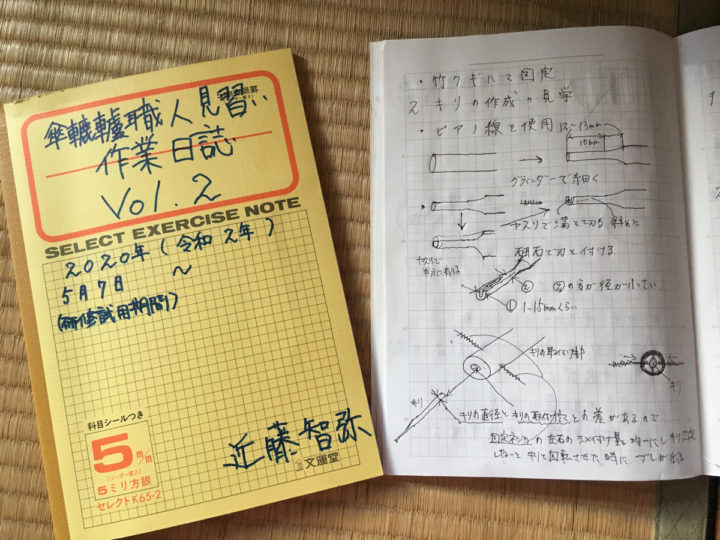 傘轆轤職人見習い
作業日誌
Vol.2
SELECT EXERCISE NOTE
2020年(令和2年)
5月7日 ～
(研修試用期間)
科目シールつき
5mm
(リーダー罫入)
5ミリ方眼
セレクトK65-2
近藤智弥
文運堂
・竹クギにて固定
2. キリの作成の見学
・ピアノ線を使用
12～13mm
10mm
グラインダーで細く
ヤスリで溝を切る
砥石で刃を付ける
② ②の方が径が小さい
① 1～1.5mmくらい
キリの取り付け部
キリ
キリ
キリの直径とキリの取付け穴との差があるので
固定ネジの左右のシメ付け量を均一にし
しないとキリを回転させた時に ブレが出る